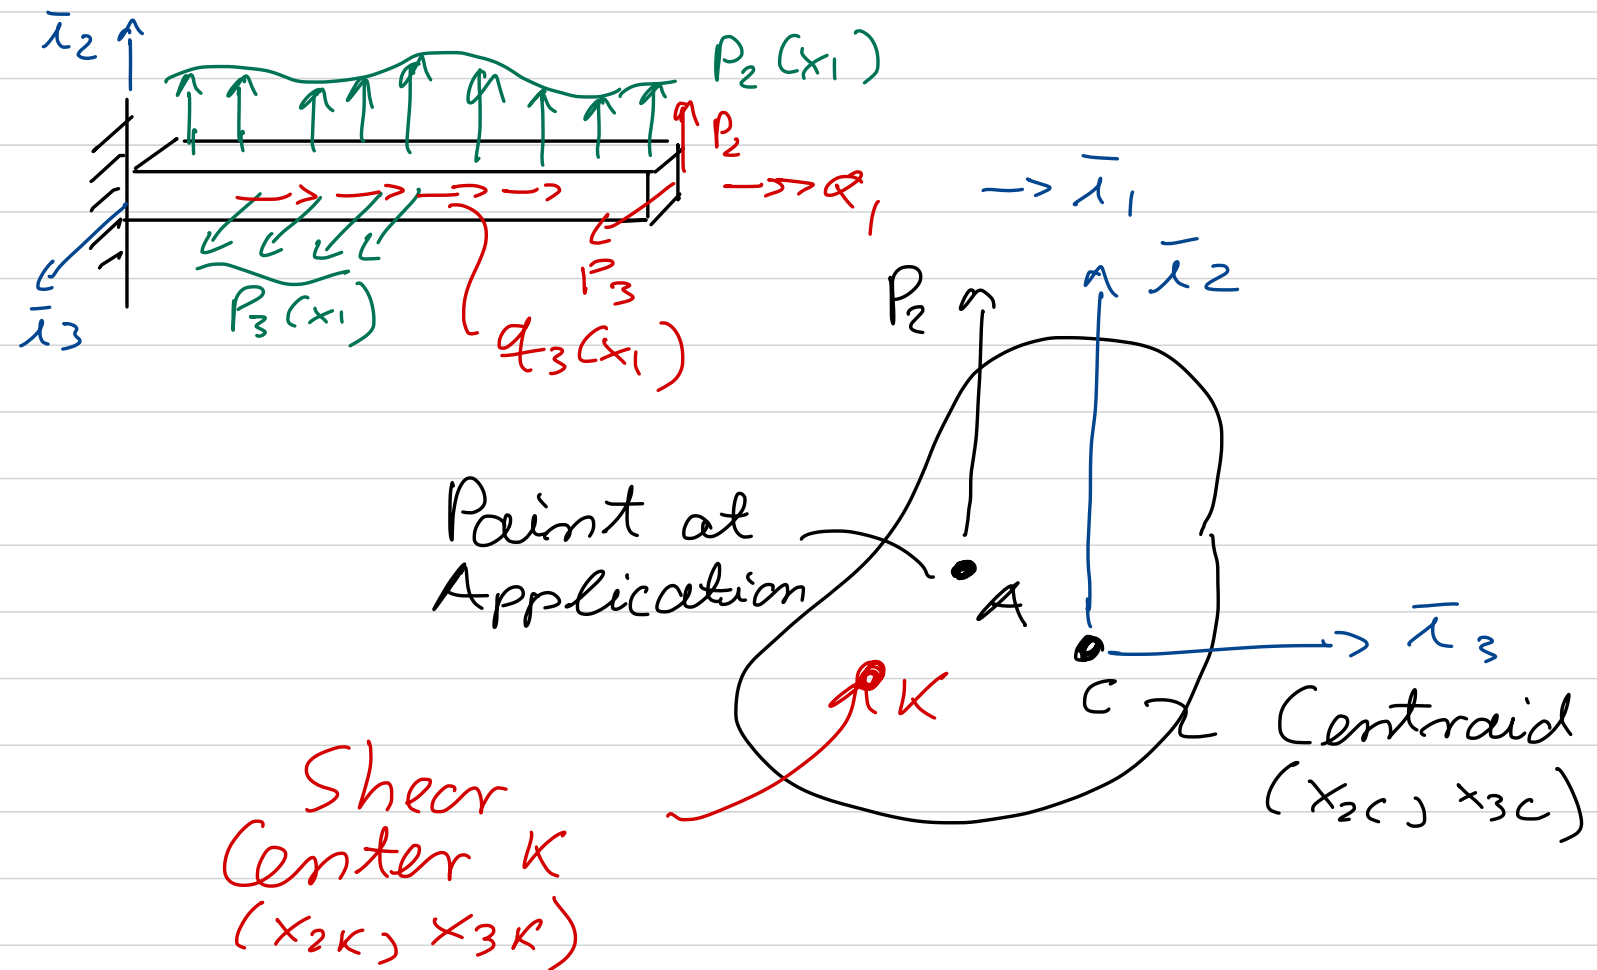 ī₂
P₂(x₁)
P₂
Q₁
ī₁
P₃
ī₃
P₃(x₁)
q₃(x₁)
P₂
ī₂
Point at
Application
A
ī₃
K
C
Centroid
(x₂c, x₃c)
Shear
Center K
(x₂K, x₃K)